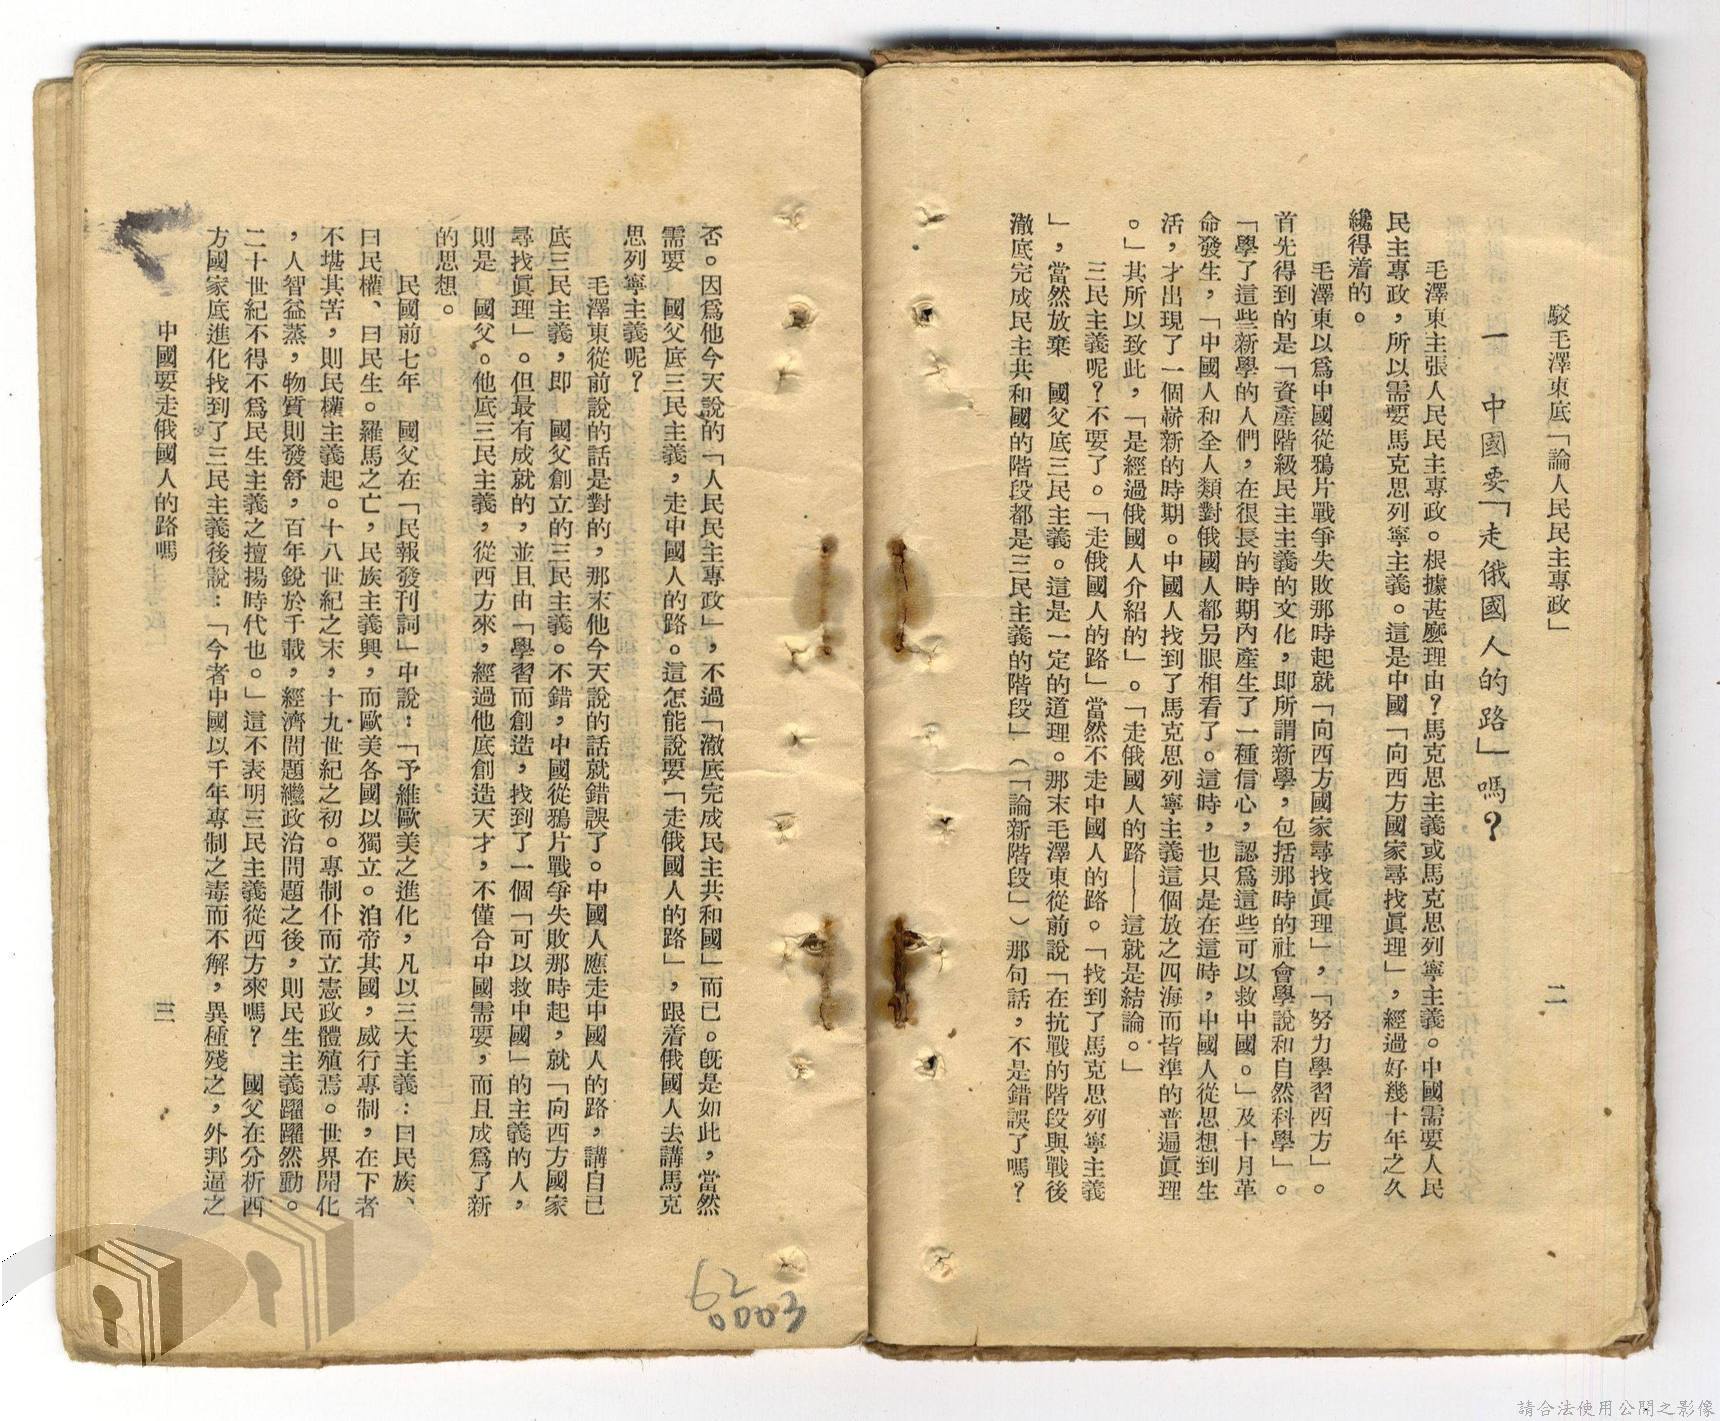 駁毛澤東底「論人民民主專政」
二
一　中國要「走俄國人的路」嗎？
毛澤東主張人民民主專政。根據甚麼理由？馬克思主義或馬克思列寧主義。中國需要人民
民主專政，所以需要馬克思列寧主義。這是中國「向西方國家尋找眞理」，經過好幾十年之久
纔得着的。
毛澤東以爲中國從鴉片戰爭失敗那時起就「向西方國家尋找眞理」，「努力學習西方」。
首先得到的是「資產階級民主主義的文化，即所謂新學，包括那時的社會學說和自然科學」。
「學了這些新學的人們，在很長的時期內產生了一種信心，認爲這些可以救中國。」及十月革
命發生，「中國人和全人類對俄國人都另眼相看了。這時，也只是在這時，中國人從思想到生
活，才出現了一個嶄新的時期。中國人找到了馬克思列寧主義這個放之四海而皆準的普遍眞理
。」其所以致此，「是經過俄國人介紹的」。「走俄國人的路——這就是結論。」
三民主義呢？不要了。「走俄國人的路」當然不走中國人的路。「找到了馬克思列寧主義
」，當然放棄　國父底三民主義。這是一定的道理。那末毛澤東從前說「在抗戰的階段與戰後
澈底完成民主共和國的階段都是三民主義的階段」（「論新階段」）那句話，不是錯誤了嗎？
否。因爲他今天說的「人民民主專政」，不過「澈底完成民主共和國」而已。旣是如此，當然
需要　國父底三民主義，走中國人的路。這怎能說要「走俄國人的路」，跟着俄國人去講馬克
思列寧主義呢？
毛澤東從前說的話是對的，那末他今天說的話就錯誤了。中國人應走中國人的路，講自己
底三民主義，即　國父創立的三民主義。不錯，中國從鴉片戰爭失敗那時起，就「向西方國家
尋找眞理」。但最有成就的，並且由「學習而創造，找到了一個「可以救中國」的主義的人，
則是　國父。他底三民主義，從西方來，經過他底創造天才，不僅合中國需要，而且成爲了新
的思想。
民國前七年　國父在「民報發刊詞」中說：「予維歐美之進化，凡以三大主義：曰民族、
曰民權、曰民生。羅馬之亡，民族主義興，而歐美各國以獨立。洎帝其國，威行專制，在下者
不堪其苦，則民權主義起。十八世紀之末，十九世紀之初。專制仆而立憲政體殖焉。世界開化
，人智益蒸，物質則發舒，百年銳於千載，經濟問題繼政治問題之後，則民生主義躍躍然動。
二十世紀不得不爲民生主義之擅揚時代也。」這不表明三民主義從西方來嗎？　國父在分析西
方國家底進化找到了三民主義後說：「今者中國以千年專制之毒而不解，異種殘之，外邦逼之
中國要走俄國人的路嗎
三
62
0003
請合法使用公開之影像